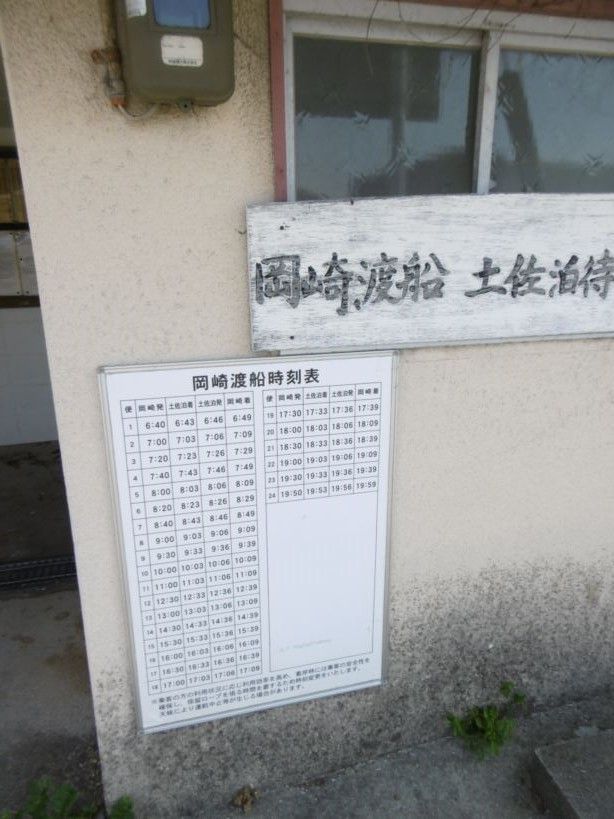 岡崎渡船 土佐泊待
岡崎渡船時刻表
便 岡崎発 土佐泊着 土佐泊発 岡崎着
1 6:40 6:43 6:46 6:49
2 7:00 7:03 7:06 7:09
3 7:20 7:23 7:26 7:29
4 7:40 7:43 7:46 7:49
5 8:00 8:03 8:06 8:09
6 8:20 8:23 8:26 8:29
7 8:40 8:43 8:46 8:49
8 9:00 9:03 9:06 9:09
9 9:30 9:33 9:36 9:39
10 10:00 10:03 10:06 10:09
11 11:00 11:03 11:06 11:09
12 12:30 12:33 12:36 12:39
13 13:00 13:03 13:06 13:09
14 14:30 14:33 14:36 14:39
15 15:30 15:33 15:36 15:39
16 16:00 16:03 16:06 16:09
17 16:30 16:33 16:36 16:39
18 17:00 17:03 17:06 17:09
便 岡崎発 土佐泊着 土佐泊発 岡崎着
19 17:30 17:33 17:36 17:39
20 18:00 18:03 18:06 18:09
21 18:30 18:33 18:36 18:39
22 19:00 19:03 19:06 19:09
23 19:30 19:33 19:36 19:39
24 19:50 19:53 19:56 19:59
※乗客の方の利用状況に応じ利用効率を高め、着岸時には乗客の安全性を
確保し、係留ロープを張る時間を要するため時刻変更をいたします。
天候により運航中止等が生じる場合があります。